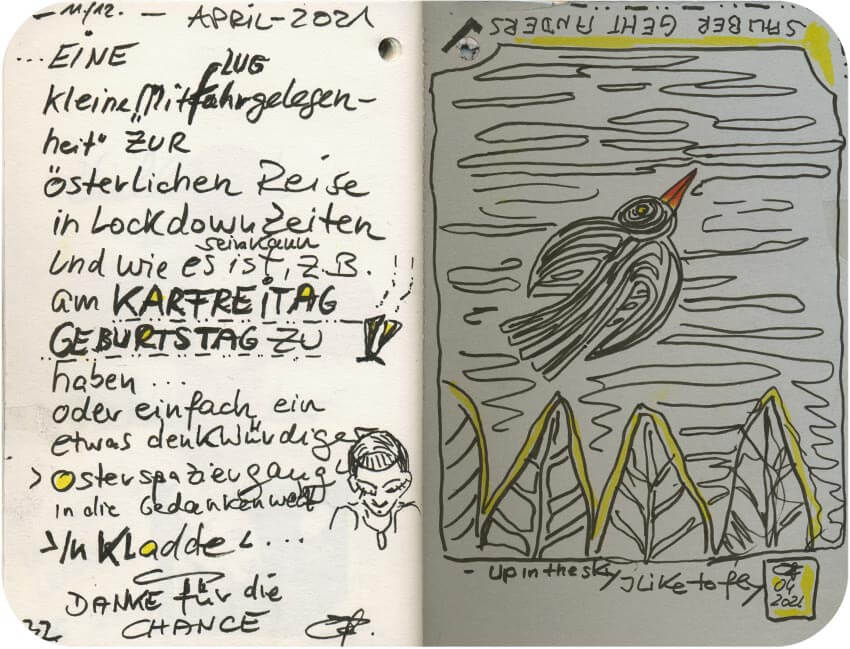 - 11/12. - APRIL-2021
...EINE
FLUG
kleine „Mitfahrgelegen-
heit" ZUR
österlichen Reise
in Lockdownzeiten
sein kann
Und wie es ist, z.B.
am KARFREITAG
GEBURTSTAG ZU
haben ...
oder einfach ein
etwas denkwürdiger
> Osterspaziergang
in die Gedankenwelt
>In Kladde< ...
DANKE für die
CHANCE
32
SAUBER GEHT ANDERS
- Up in the sky I like to fly
04
2021